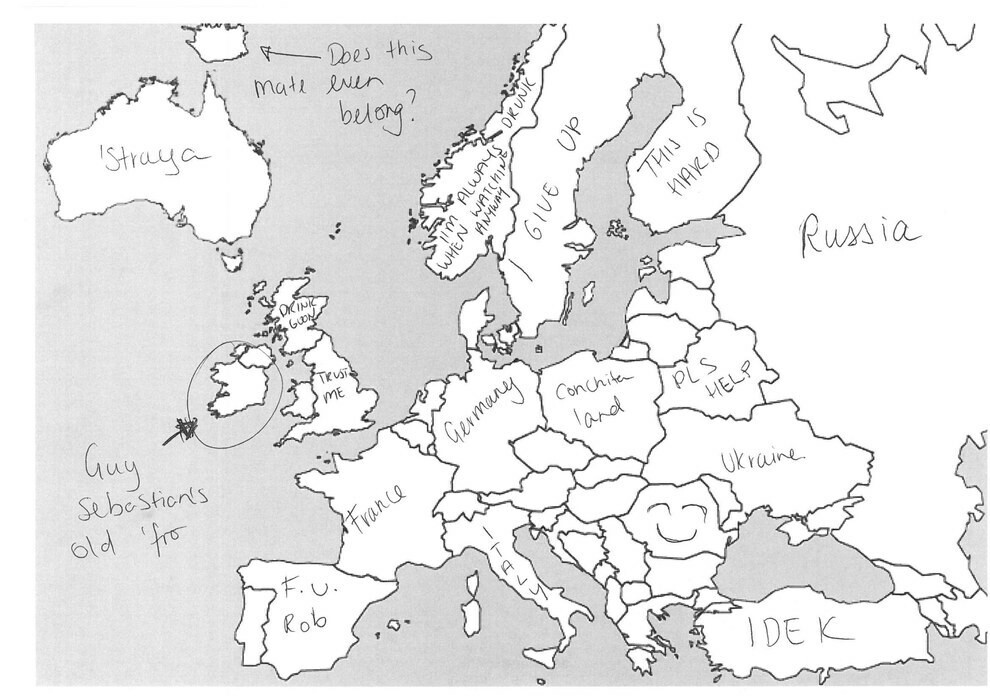 Does this
mate even
belong?
'Straya
I'M ALWAYS DRUNK
WHEN WATCHING
ANYWAY
I GIVE UP
THIS IS
HARD
Russia
DRINK
GOON
TRUST
ME
Guy
Sebastian's
old 'fro
Germany
Conchita
land
PLS
HELP
Ukraine
France
ITALY
F.U.
Rob
IDEK